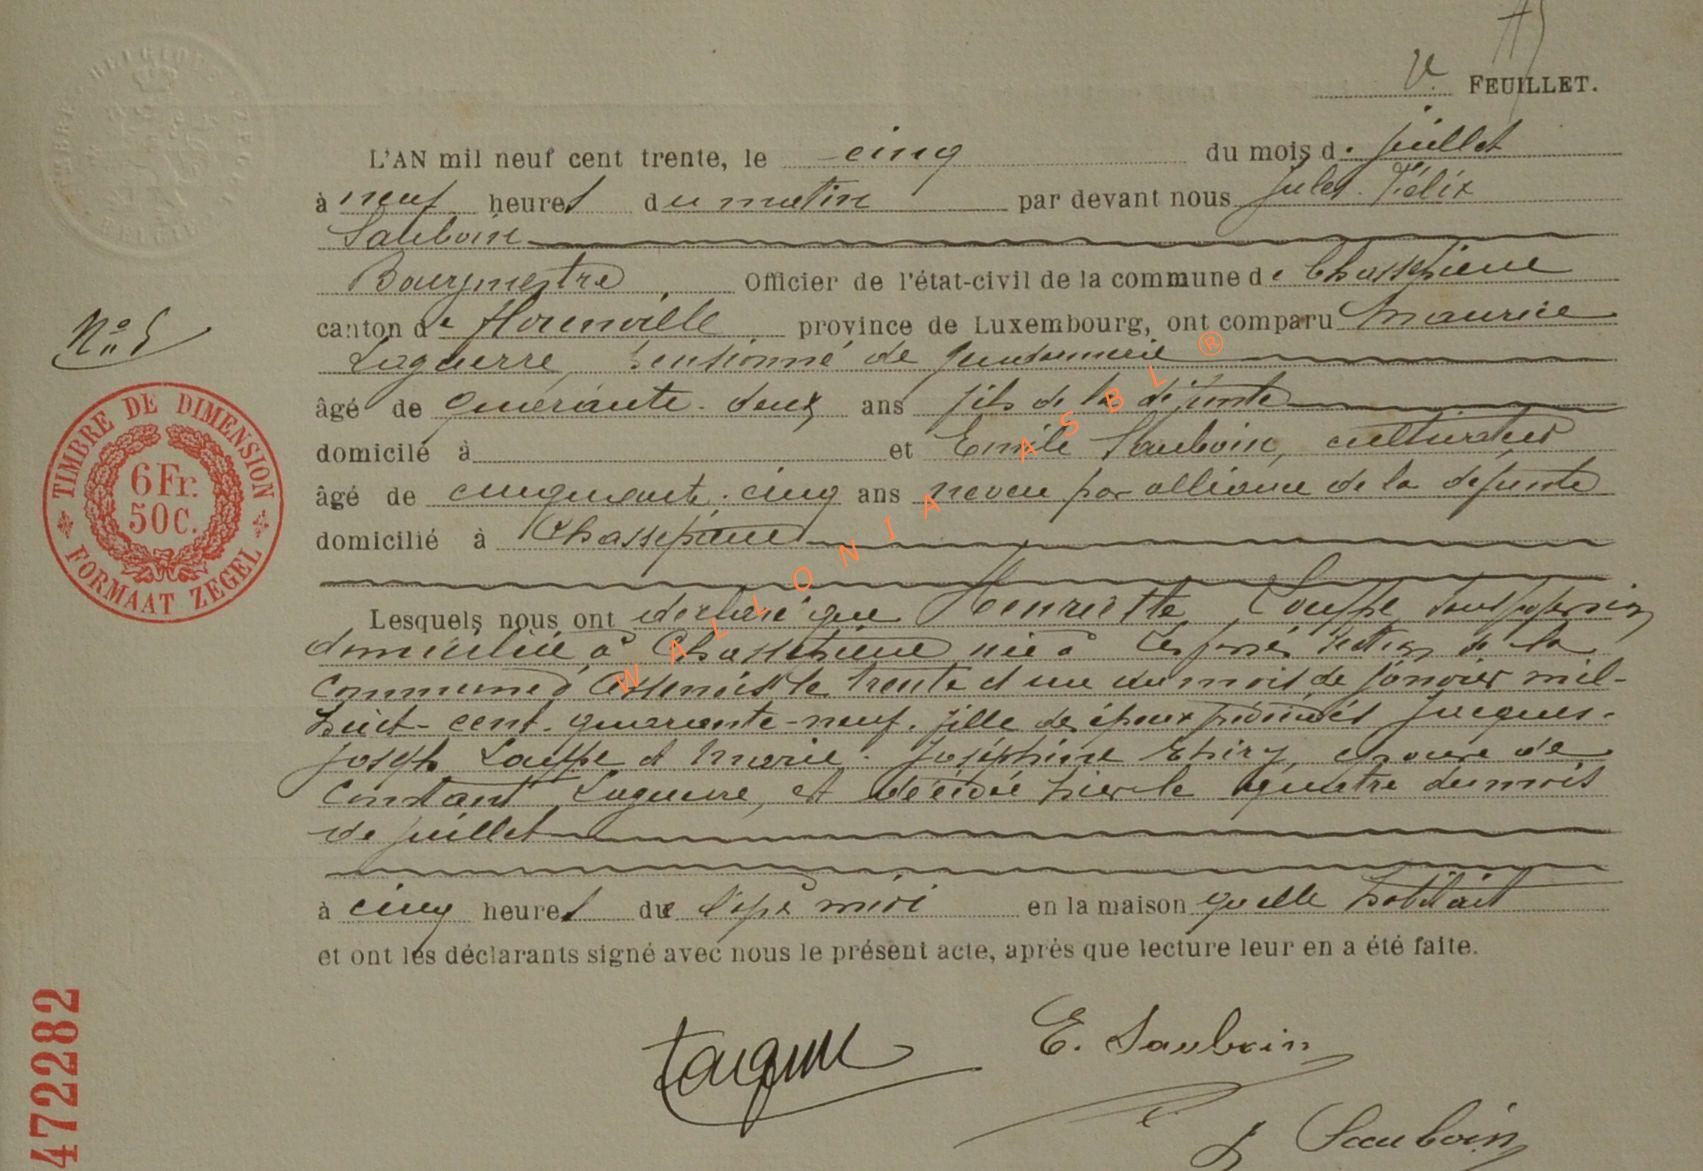 BELGIQUE
BELGIË
V. FEUILLET.
L'AN mil neuf cent trente, le cinq du mois de juillet
à neuf heures du matin par devant nous Jules Félix
Sauboin
Bourgmestre Officier de l'état-civil de la commune de Chassepierre
canton de Florenville province de Luxembourg, ont comparu Maurice
Laguerre, pensionné de gendarmerie
âgé de quarante-deux ans fils de la défunte
domicilé à et Emile Sauboin, cultivateur
âgé de cinquante-cinq ans neveu par alliance de la défunte
domicilié à Chassepierre
Lesquels nous ont déclaré que Henriette Louppe sans profession
domiciliée à Chassepierre née à section de la
commune d' Assenois le trente et un du mois de janvier mil-
huit-cent-quarante-neuf, fille des époux Jacques-
Joseph Louppe et Marie-Joséphine Thiry, épouse de
Constant Laguerre, est décédée hier le quatre du mois
de juillet
à cinq heures de l'après midi en la maison qu'elle habitait
et ont les déclarants signé avec nous le présent acte, après que lecture leur en a été faite.
Laguerre
E. Sauboin
J Sauboin
No 5
TIMBRE DE DIMENSION
6 Fr.
50 C.
FORMAAT ZEGEL
472282
WALLONIA ASBL ®